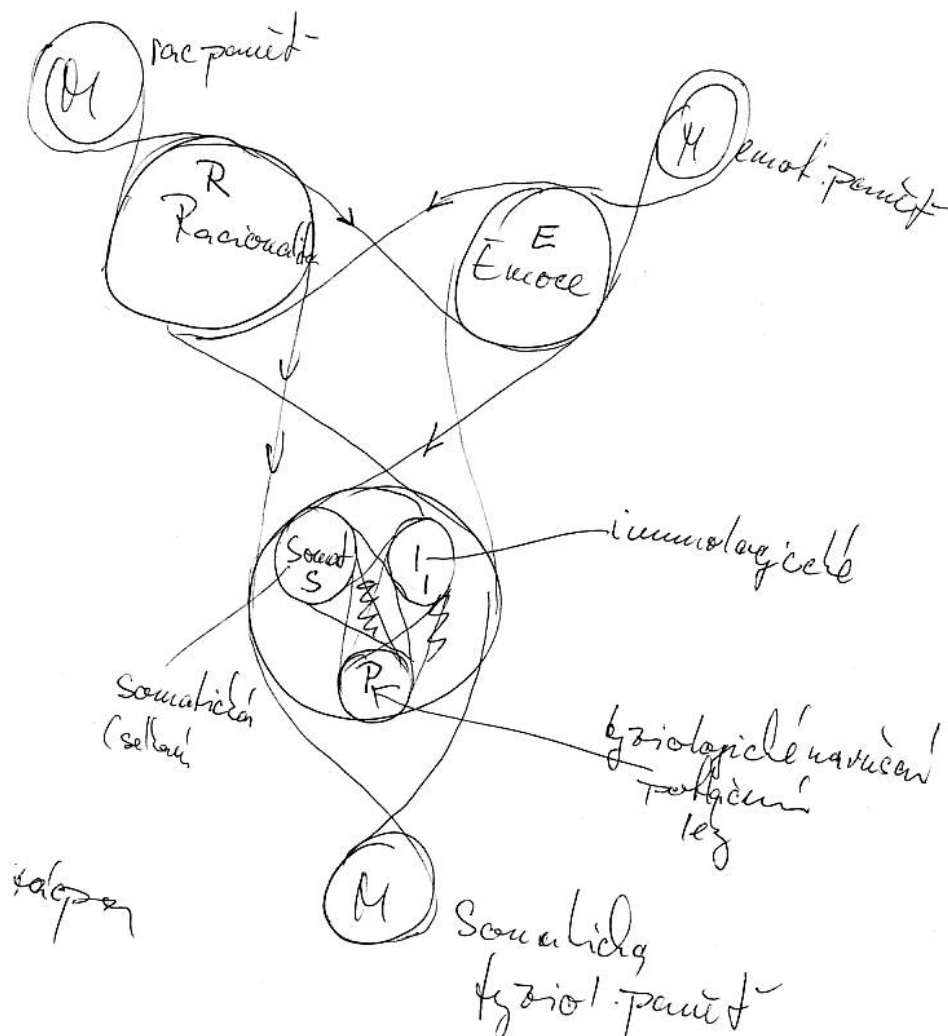 M
rac paměť
R
Racionalita
M
emot. paměť
E
Emoce
Somat
S
I
imunologické
P
somatická
fyziologické narušení
M
Somatická
fyziol. paměť